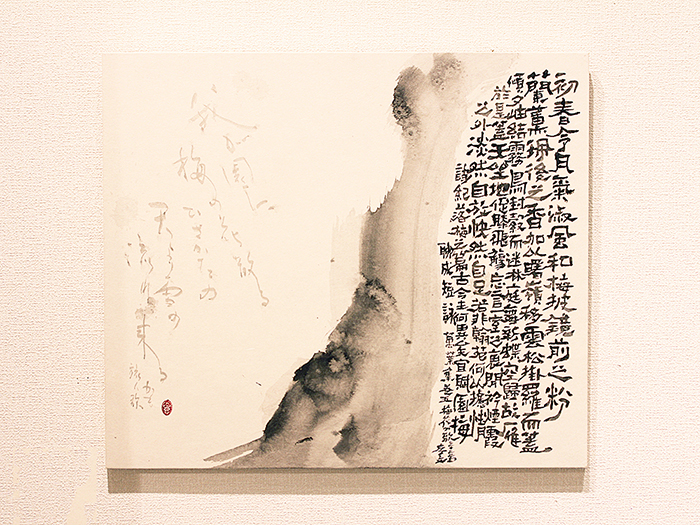 初春令月氣淑風和梅披鏡前之粉
蘭薫珮後之香加以曙嶺移雲松掛羅而蓋
傾夕岫結霧鳥封縠而迷林庭舞新蝶空歸故雁
於是蓋天坐地促膝飛觴忘言一室之裏開衿煙霞
之外淡然自放快然自足若非翰苑何以攄情
詩紀落梅之篇古今夫何異矣宜賦園梅
聊成短詠 萬葉集巻五 梅花歌
我が園に
梅の花散る
ひさかたの
天より雪の
流れ来る
かも
旅人歌